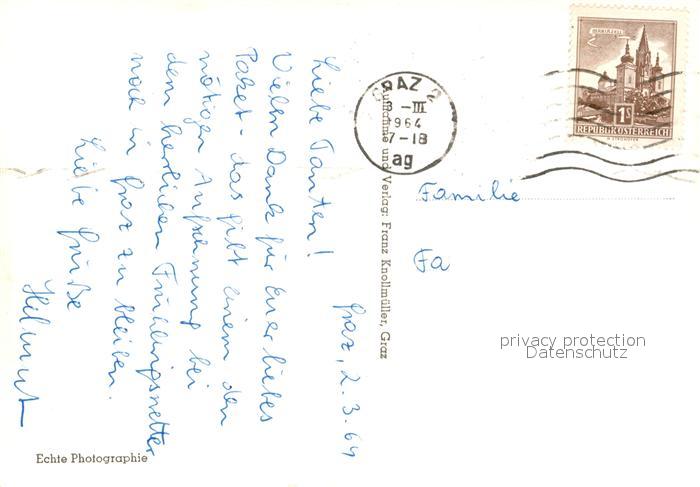 Graz, 2.3.64
Liebe Tanten!
Vielen Dank für Euer liebes
Paket - das gibt einem den
nötigen Aufschwung bei
dem herrlichen Frühlingswetter
noch in Graz zu bleiben.
Liebe Grüße
Helmut
Echte Photographie
Aufnahme und Verlag: Franz Knollmüller, Graz
GRAZ 2
-III
1964
7-18
ag
MARIAZELL
1S
REPUBLIK ÖSTERREICH
Familie
Fa
privacy protection
Datenschutz